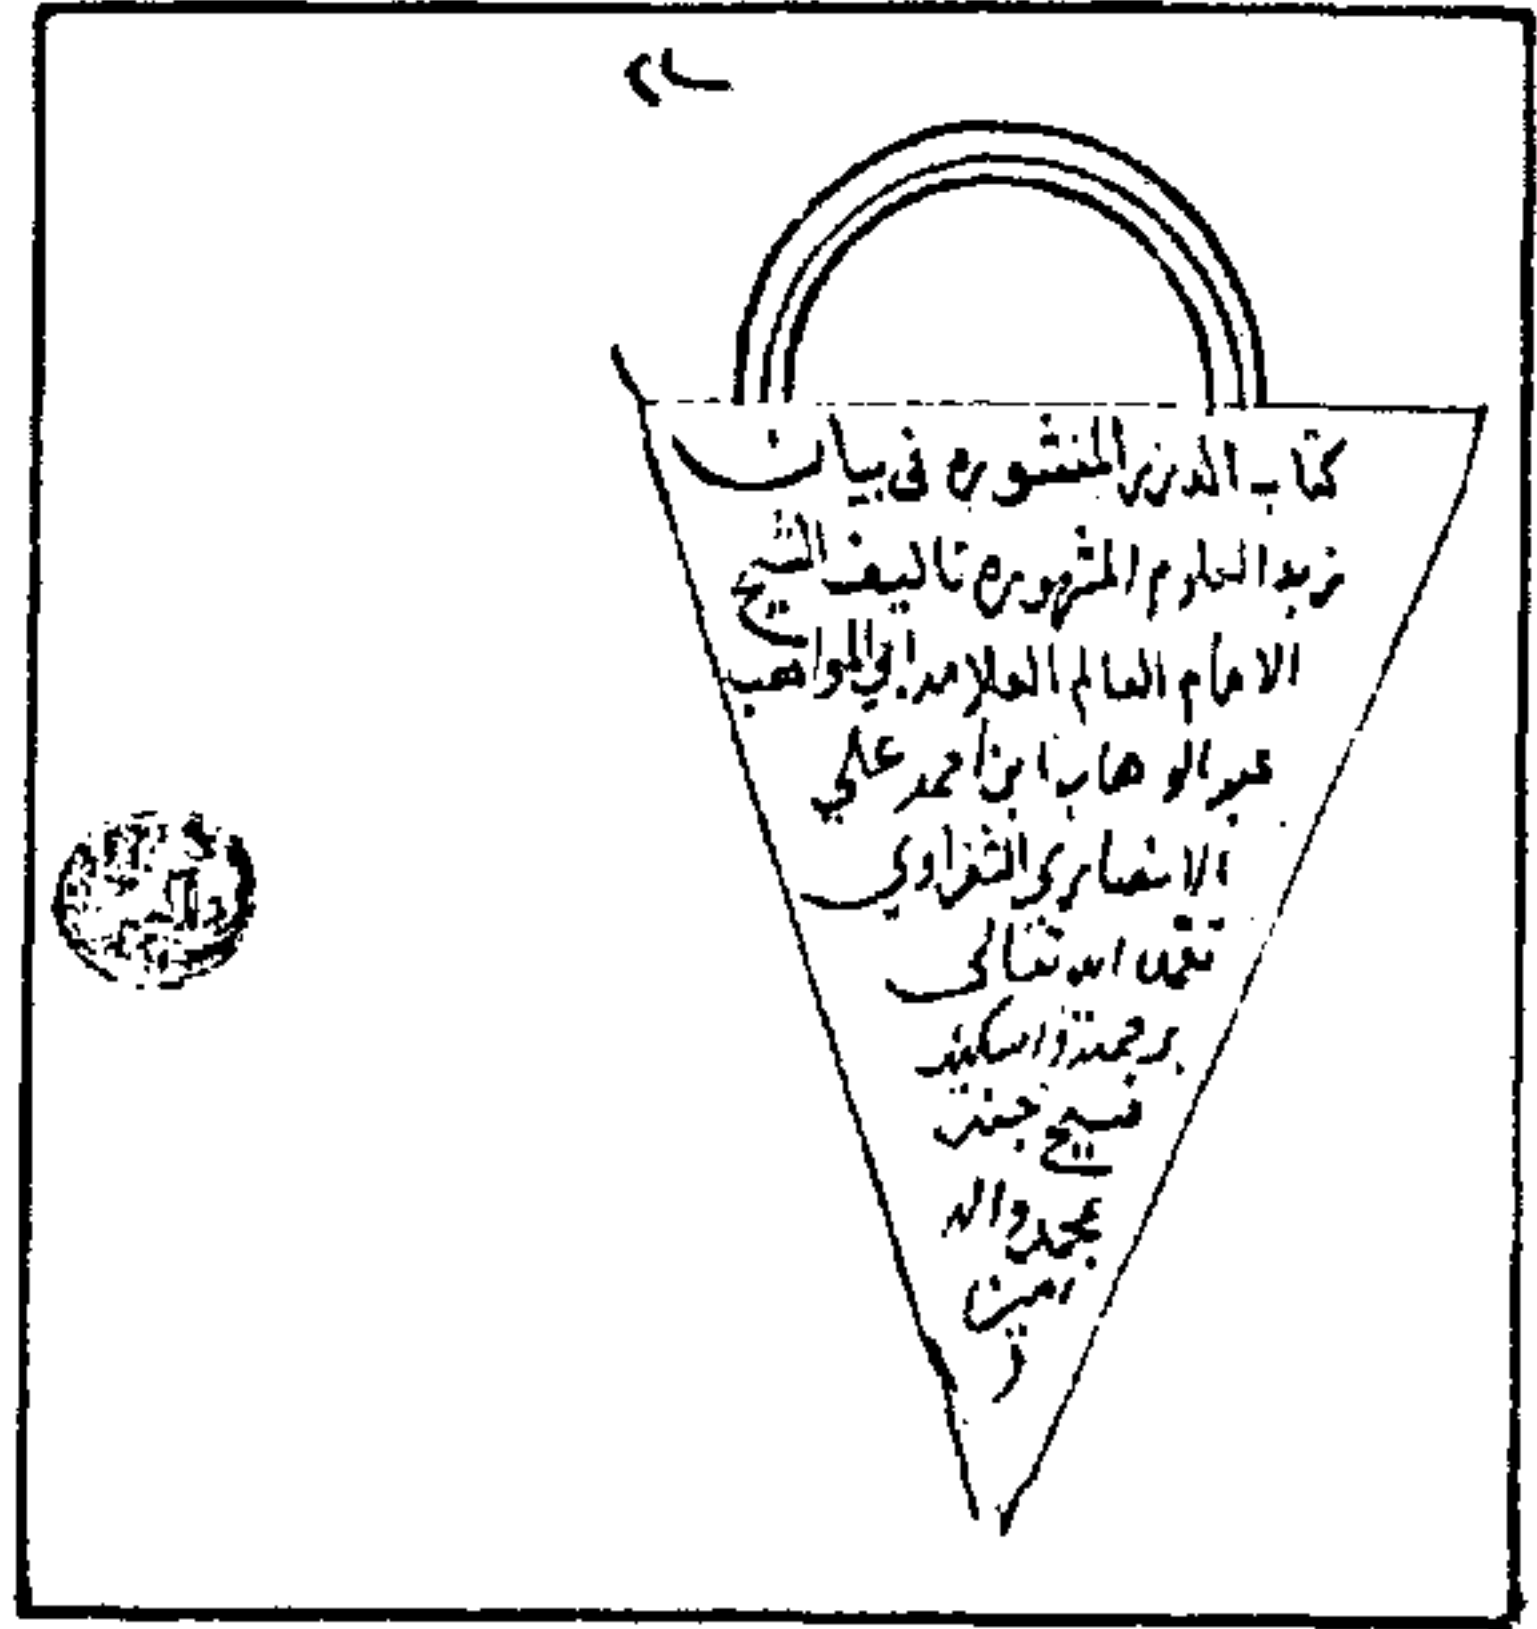 كتاب الدرر المنشوره في بيان
زبد العلوم المشهوره تاليف الشيخ
الامام العالم العلامه ابي المواهب
عبد الوهاب ابن احمد علي
الانصاري الشعراوي
تغمده الله تعالى
برحمته واسكنه
فسيح جنته
بمحمد واله
امين